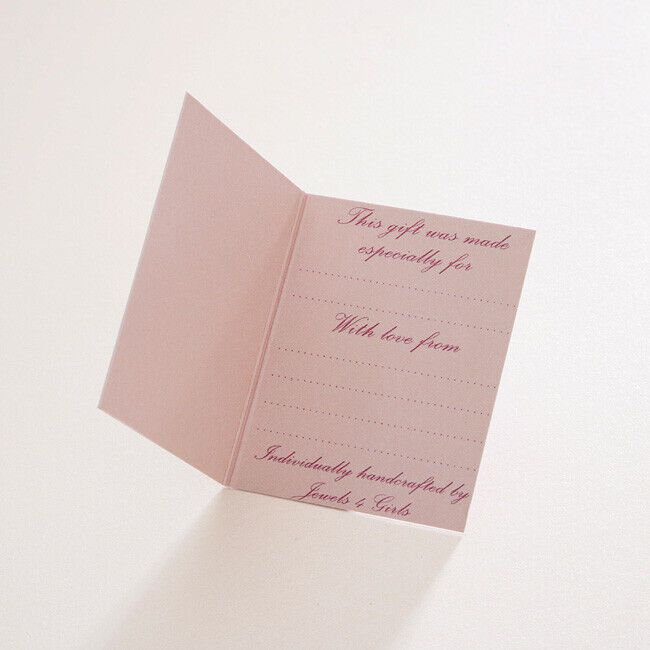 This gift was made
especially for
With love from
Individually handcrafted by
Jewels 4 Girls